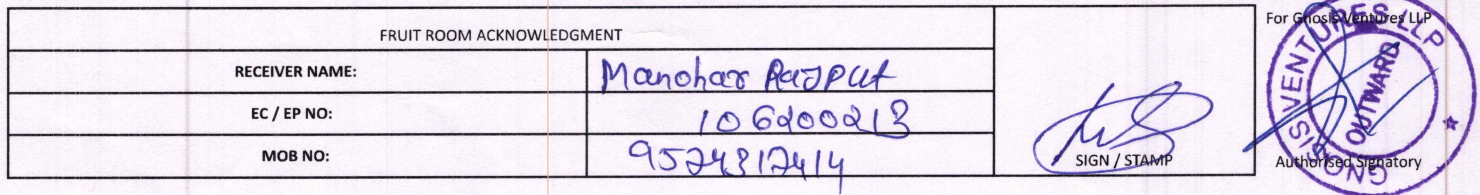 FRUIT ROOM ACKNOWLEDGMENT
RECEIVER NAME: Manohar Rajput
EC / EP NO: 106200213
MOB NO: 9524312414
SIGN / STAMP
For Gnosis Ventures LLP
GNOSIS VENTURES LLP
OUTWARD
Authorised Signatory